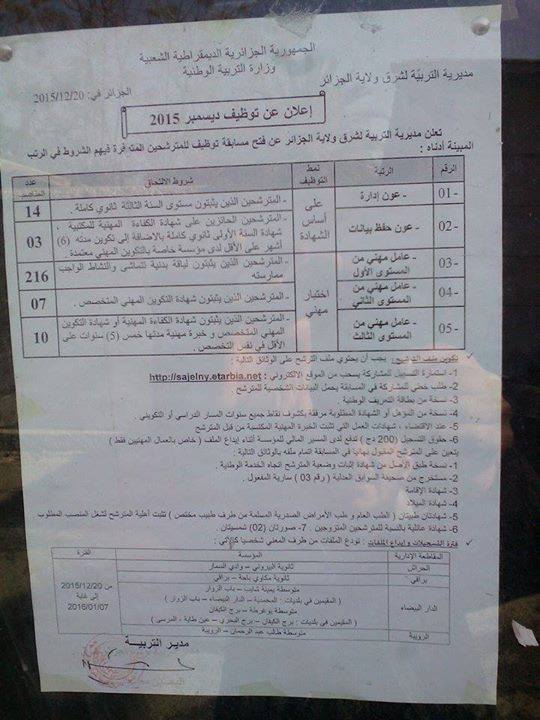 الجمهورية الجزائرية الديمقراطية الشعبية
وزارة التربية الوطنية
مديرية التربية لشرق ولاية الجزائر
الجزائر في: 2015/12/20
إعلان عن توظيف ديسمبر 2015
تعلن مديرية التربية لشرق ولاية الجزائر عن فتح مسابقة توظيف للمترشحين المتوفرة فيهم الشروط في الرتب
المبينة أدناه :
الرقم الرتبة نمط التوظيف شروط الالتحاق عدد المناصب
01- - عون إدارة على أساس الشهادة - المترشحين الذين يثبتون مستوى السنة الثالثة ثانوي كاملة . 14
02- - عون حفظ بيانات - المترشحين الحائزين على شهادة الكفاءة المهنية للمكتبية ، شهادة السنة الأولى ثانوي كاملة بالاضافة إلى تكوين مدته (6) أشهر على الأقل لدى مؤسسة خاصة بالتكوين المهني معتمدة . 03
03- - عامل مهني من المستوى الأول اختبار مهني - المترشحين الذين يثبتون لياقة بدنية تتماشى والنشاط الواجب ممارسته 216
04- - عامل مهني من المستوى الثاني - المترشحين الذين يثبتون شهادة التكوين المهني المتخصص . 07
05- - عامل مهني من المستوى الثالث - المترشحين الذين يثبتون شهادة الكفاءة المهنية أو شهادة التكوين المهني المتخصص و خبرة مهنية مدتها خمس (5) سنوات على الأقل في نفس التخصص . 10
تكوين ملف الترشح : يجب أن يحتوي ملف الترشح على الوثائق التالية :
1- استمارة التسجيل للمشاركة يسحب من الموقع الالكتروني : http://sajelny.etarbia.net
2- طلب خطي للمشاركة في المسابقة يحمل البيانات الشخصية للمترشح
3- نسخة من بطاقة التعريف الوطنية .
4- نسخة من المؤهل أو الشهادة المطلوبة مرفقة بكشوف نقاط جميع سنوات المسار الدراسي أو التكويني
5- عند الاقتضاء ، شهادات العمل التي تثبت الخبرة المهنية المكتسبة من قبل المترشح
6- حقوق التسجيل (200 دج ) تدفع لدى المسير المالي للمؤسسة أثناء إيداع الملف ( خاص بالعمال المهنيين فقط )
يتعين على المترشح المقبول نهائيا في المسابقة اتمام ملفه بالوثائق التالية :
1- نسخة طبق الأصل من شهادة إثبات وضعية المترشح اتجاه الخدمة الوطنية .
2- مستخرج من صحيفة السوابق العدلية ( رقم 03 ) سارية المفعول .
3- شهادة الإقامة
4- شهادة الميلاد
5- شهادتان طبيتان ( الطب العام و طب الأمراض الصدرية المسلمة من طرف طبيب مختص ) تثبت أهلية المترشح لشغل المنصب المطلوب
6- شهادة عائلية بالنسبة للمترشحين المتزوجين . 7- صورتان (02) شمسيتان .
فترة التسجيلات وإيداع الملفات : تودع الملفات من طرف المعني شخصيا كالآتي :
المقاطعة الإدارية المؤسسة الفترة
الحراش ثانوية البيروني – وادي السمار
براقي ثانوية مكاوي باحة – براقي
الدار البيضاء متوسطة يمينة شايب – باب الزوار
( المقيمين في بلديات : المحمدية – الدار البيضاء – باب الزوار )
متوسطة بوغرطة – برج الكيفان
( المقيمين في بلديات : برج الكيفان – برج البحري – عين طاية - المرسى )
الرويبة متوسطة طالب عبد الرحمان – الرويبة
من 2015/12/20
إلى غاية
2016/01/07
مديـر التربيـــة